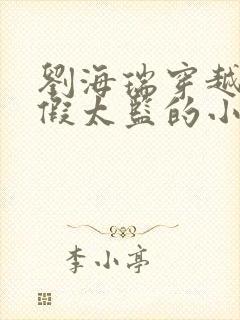 劉海瑞穿越
假太監的小
李小亭